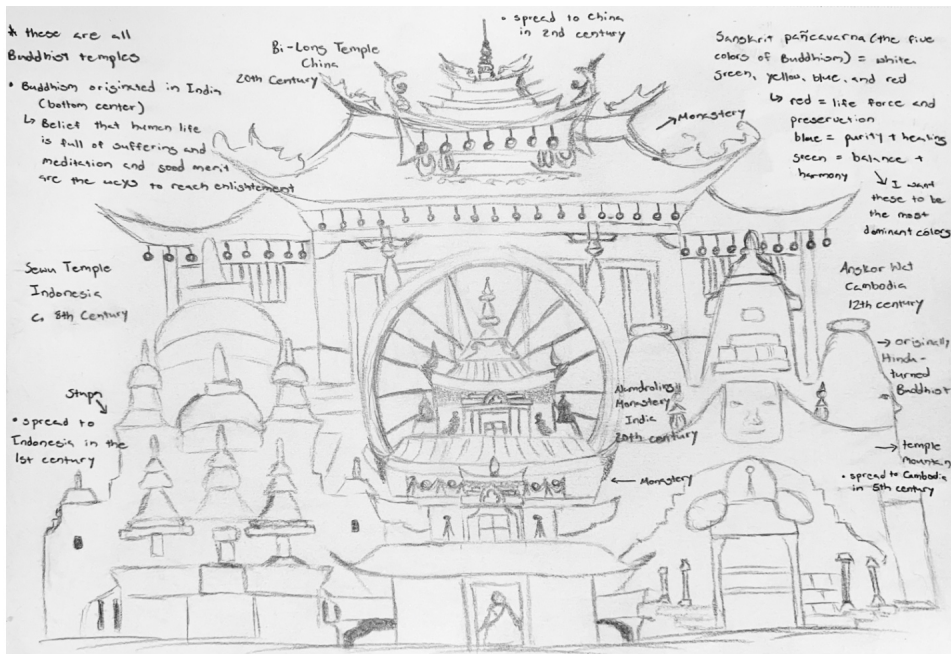 * these are all
Buddhist temples
• Buddhism originated in India
(bottom center)
↳ Belief that human life
is full of suffering and
meditation and good merit
are the ways to reach enlightement
Bi-Long Temple
China
20th Century
• spread to China
in 2nd century
→ Monastery
Sanskrit pañcavarna (the five
colors of Buddhism) = white
green, yellow, blue, and red
↳ red = life force and
preservation
blue = purity + healing
green = balance +
harmony
↘ I want
these to be
the most
dominant colors
Sewu Temple
Indonesia
c. 8th Century
Stupa
• spread to
Indonesia in the
1st century
Angkor Wat
Cambodia
12th century
→ originally
Hindu-
turned
Buddhist
→ temple
mountain
• spread to Cambodia
in 5th century
Namdroling
Monastery
India
20th century
← Monastery